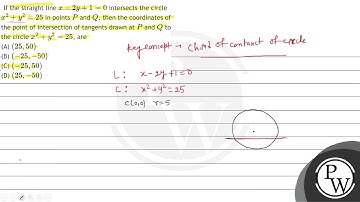 If the straight line x − 2y + 1 = 0 intersects the circle
x² + y² = 25 in points P and Q, then the coordinates of
the point of intersection of tangents drawn at P and Q to
the circle x² + y² = 25, are
(A) (25, 50)
(B) (−25, −50)
(C) (−25, 50)
(D) (25, −50)
Key concept → Chord of contact of circle
L: x − 2y + 1 = 0
C: x² + y² = 25
C(0,0) r = 5
PW